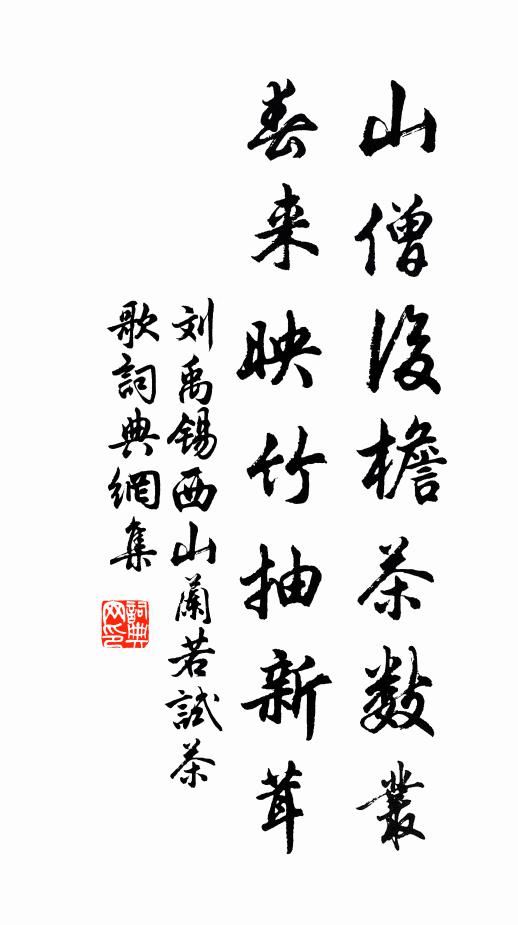 山僧後檐茶数叢
春来映竹抽新茸
刘禹锡西山蘭若試茶
歌詞典網集
詞典网印